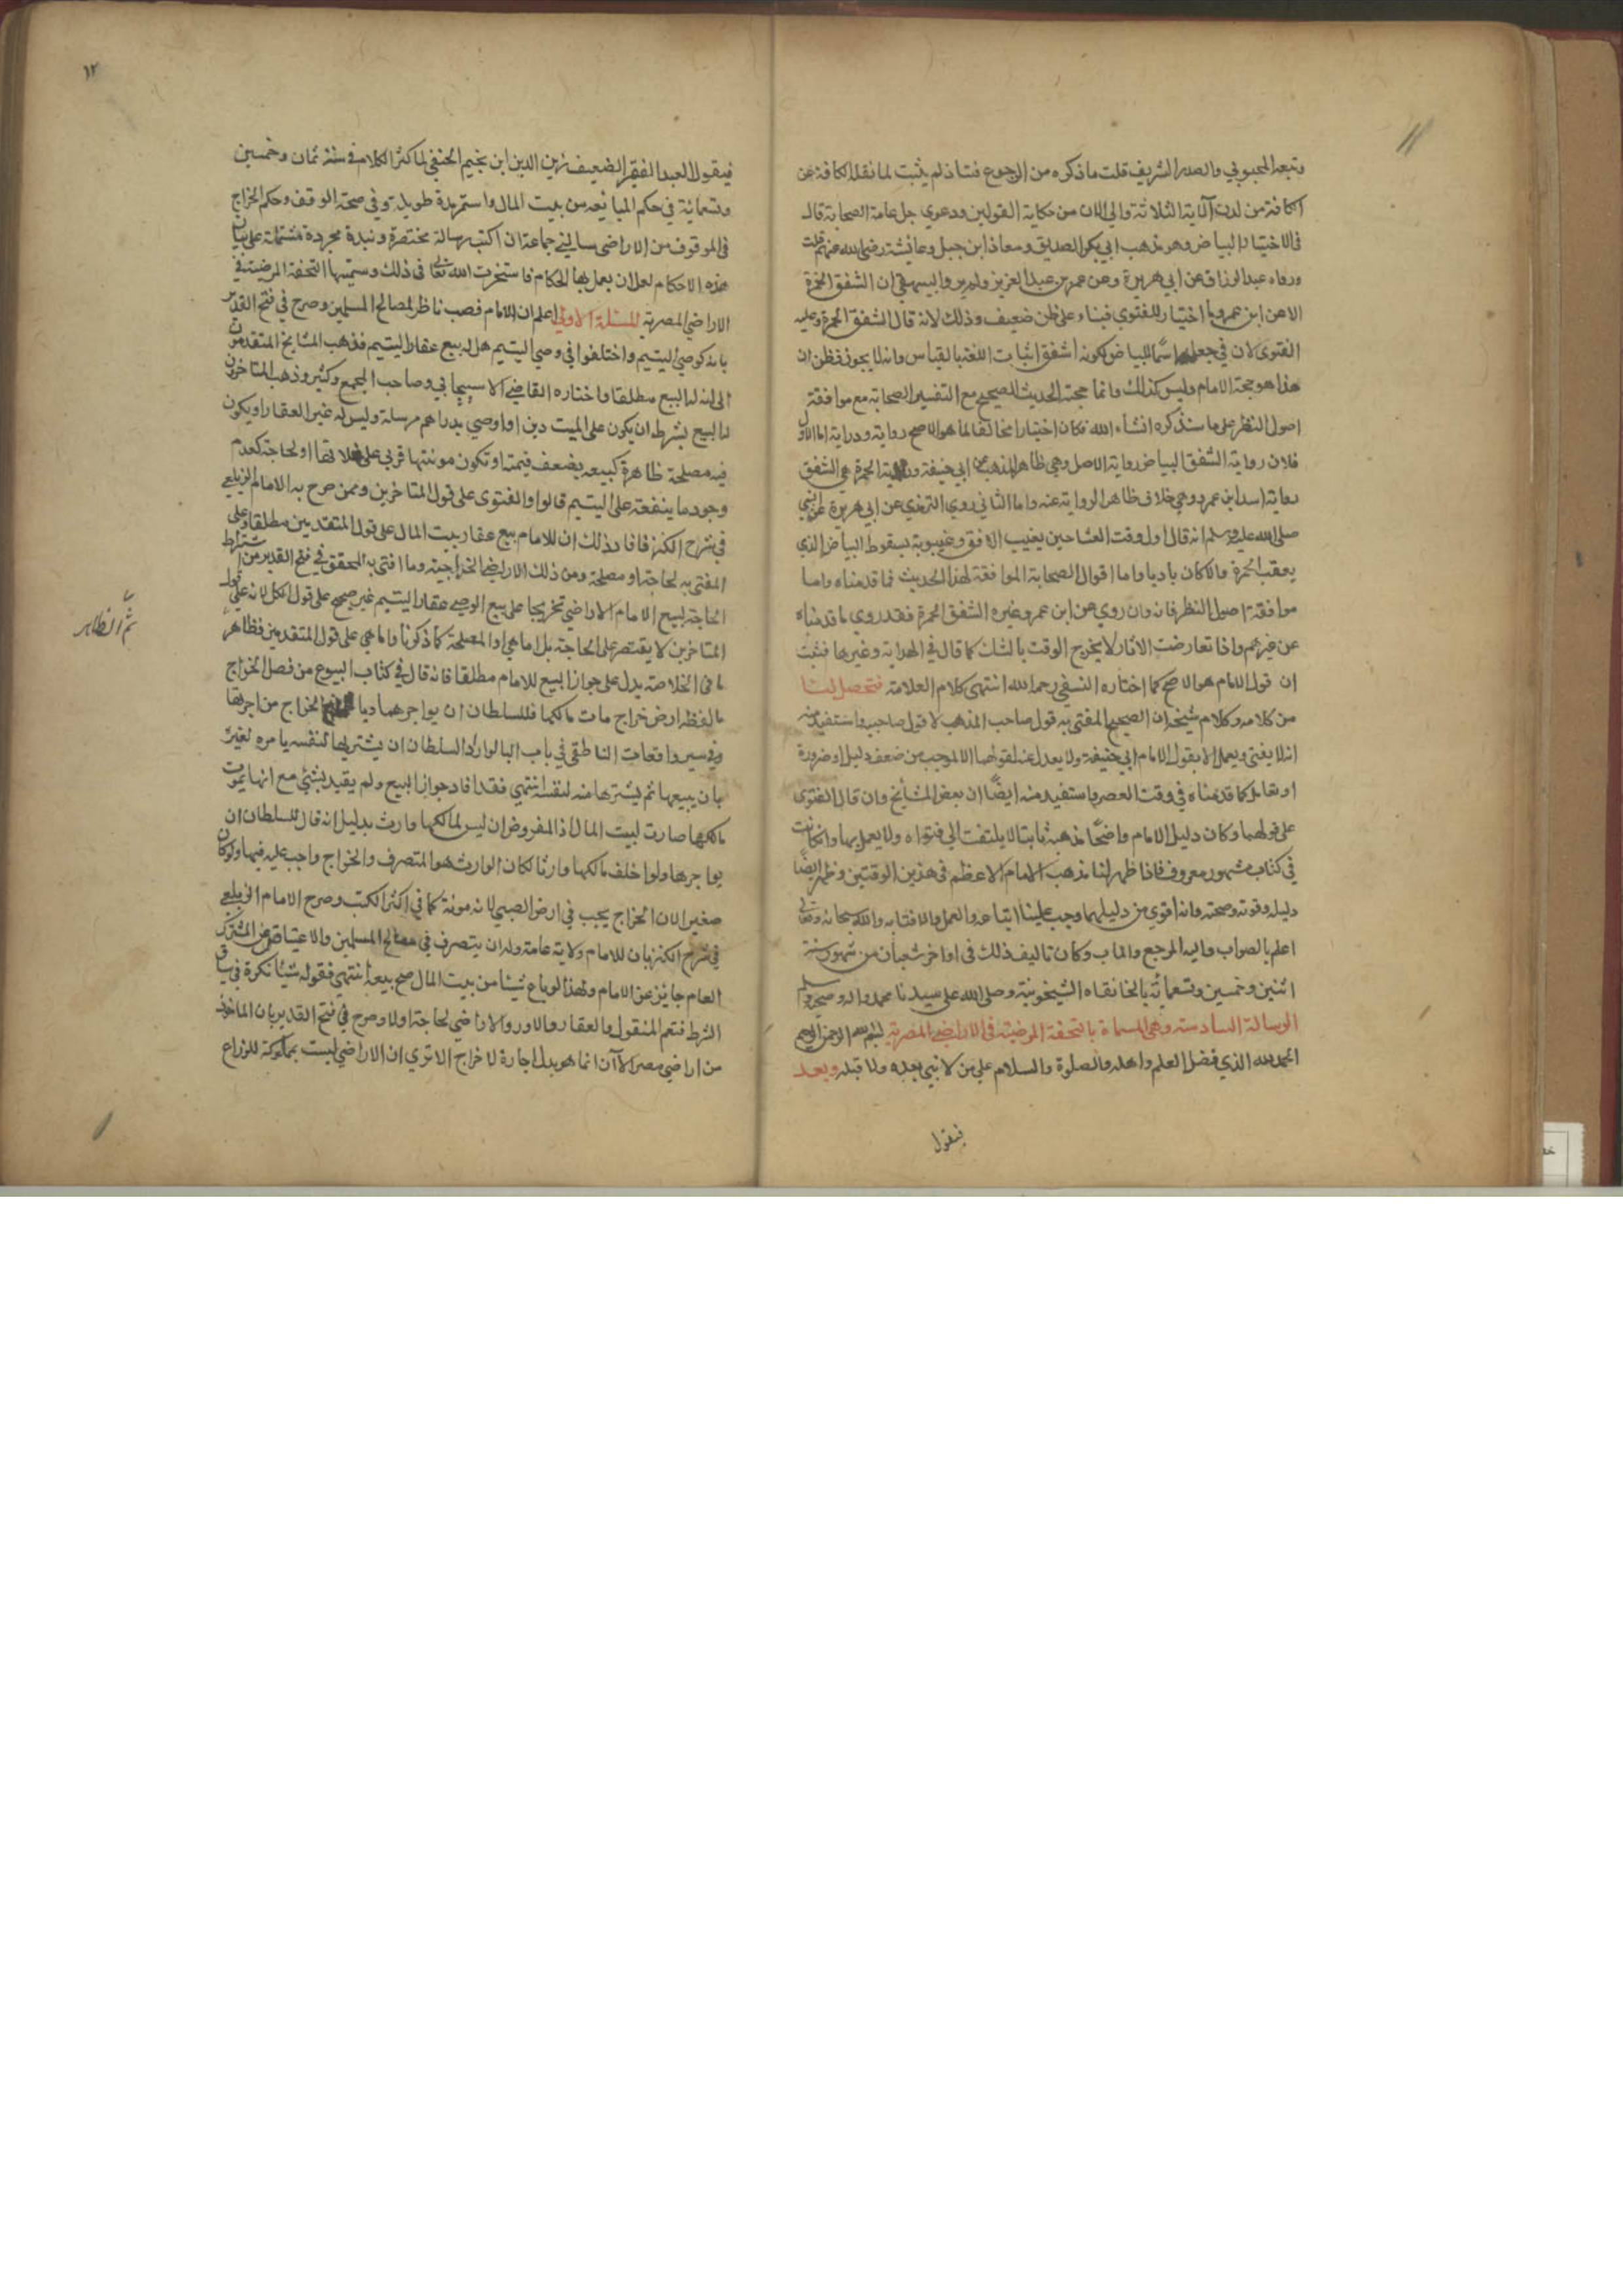 وتبعه المحبوبي والصدر الشريف قلت ما ذكره من الرجوع فشاذ لم يثبت لما نقله الكافة عن
الكافة من لدن الائمة الثلاثة والى الان من حكاية القولين ودعوي جل عامة الصحابة قال
في الاختيار البياض وهو مذهب ابي بكر الصديق ومعاذ ابن جبل وعائشة رضي الله عنهم قلت
ورواه عبد الرزاق عن ابي هريرة وعن عمر بن عبد العزيز ولم يرو البيهقي ان الشفق الحمرة
الا عن ابن عمر وما اختيار للفتوي فبناء على ظن ضعيف وذلك لانه قال الشفق الحمرة وعليه
الفتوى لان في جعله اسما للبياض لكونه اشفق اثبات اللغة بالقياس وانه لا يجوز فظن ان
هذا هو حجة الامام وليس كذلك وانما حجته الحديث الصحيح مع التفسير الصحابة مع موافقة
اصول النظر على ما سنذكره انشاء الله فكان اختيارا مخالفا لما هو الاصح رواية ودراية اما الاول
فلان رواية الشفق البياض رواية الاصل وهي ظاهر المذهب عن ابي حنيفة ورواية الحمرة هي الشفق
رواية اسد ابن عمرو وهي خلاف ظاهر الرواية عنه واما الثاني روي الترمذي عن ابي هريرة عن النبي
صلى الله عليه وسلم انه قال اول وقت العشا حين يغيب الافق وغيبوبة بسقوط البياض الذي
يعقب الحمرة والا كان باديا واما اقوال الصحابة الموافقة لهذا الحديث فما قدمناه واما
موافقة اصول النظر فانه وان روي عن ابن عمر وغيره الشفق الحمرة فقد روي ما قدمناه
عن غيرهم واذا تعارضت الاثار لا يخرج الوقت بالشك كما قال في الهداية وغيرها فثبت
ان قول الامام هو الاصح كما اختاره النسفي رحمه الله انتهى كلام العلامة فتحصل لنا
من كلامه وكلام شيخه ان الصحيح المفتى به قول صاحب المذهب لا قول صاحبيه واستفيد منه
انه لا يفتى ويعمل الا بقول الامام ابي حنيفة ولا يعدل عنه لقولهما الا لموجب من ضعف دليل او ضرورة
او تعامل كما قدمناه في وقت العصر واستفيد منه ايضا ان بعض المشايخ وان قال الفتوى
على قولهما وكان دليل الامام واضحا مذهبه ثابتا لا يلتفت الى فتواه ولا يعمل بها وان كانت
في كتاب مشهور معروف فاذا ظهر لنا مذهب الامام الاعظم في هذين الوقتين وظهر ايضا
دليله وقوته وصحته وانه اقوى من دليلهما وجب علينا اتباعه والعمل والافتا به والله سبحانه وتعالى
اعلم بالصواب واليه المرجع والماب وكان تاليف ذلك في اواخر شعبان من شهور سنة
اثنين وخمسين وتسعمائة بالخانقاه الشيخونية وصلى الله على سيدنا محمد واله وصحبه وسلم
الرسالة السادسة وهي المسماة بالتحفة المرضية في الاراضي المصرية بسم الله الرحمن الرحيم
الحمد لله الذي فضل العلم واهله والصلوة والسلام على من لا نبي بعده ولا قبله وبعد
فيقول
١٢
فيقول العبد الفقير الضعيف زين الدين ابن نجيم الحنفي لما كثر الكلام في سنة ثمان وخمسين
وتسعمائة في حكم المبائعه من بيت المال واستمر مدة طويلة وفي صحة الوقف وحكم الخراج
في الموقوف من الاراضي سالني جماعة ان اكتب رسالة مختصرة ونبذة مجردة مشتملة على بيان
هذه الاحكام لعل ان يعمل بها الحكام فاستخرت الله تعالى في ذلك وسميتها التحفة المرضية في
الاراضي المصرية المسئلة الاولى اعلم ان الامام نصب ناظر لمصالح المسلمين وصرح في فتح القدير
بانه كوصي اليتيم واختلفوا في وصي اليتيم هل له بيع عقار اليتيم فذهب المشايخ المتقدمون
الى ان له البيع مطلقا واختاره القاضي الاسبيجابي وصاحب المجمع وكثير وذهب المتاخرون
له البيع بشرط ان يكون على الميت دين او اوصي بدراهم مرسلة وليس له غير العقار او يكون
فيه مصلحة ظاهرة كبيعه بضعف قيمته او تكون مونتها تربي على غلاتها او لحاجة كعدم
وجود ما ينفعة على اليتيم قالوا والفتوى على قول المتاخرين وممن صرح به الامام الزيلعي
في شرح الكنز فافاد ذلك ان للامام بيع عقار بيت المال على قول المتقدمين مطلقا وعلى
المفتى به لحاجة او مصلحة ومن ذلك الاراضي الخراجية وما افتى به المحقق في فتح القدير من اشتراط
الحاجة لبيع الامام الاراضي تخريجا على بيع الوصي عقار اليتيم غير صحيح على قول الكل لانه على قول
المتاخرين لا يقتصر على الحاجة بل اما هي او المصلحة كما ذكرنا واما هي على قول المتقدمين فظاهر
ما في الخلاصة يدل على جواز البيع للامام مطلقا فانه قال في كتاب البيوع من فصل الخراج
ما لفظه ارض خراج مات مالكها فللسلطان ان يواجرها ويا الخراج من اجرتها
وفي سير واقعات الناطقي في باب البا لو اراد السلطان ان يشتريها لنفسه يامره لغيره
بان يبيعها ثم يشترها منه لنفسه انتهي فقد افاد جواز البيع ولم يقيد بشئ مع انها بموت
مالكها صارت لبيت المال اذ المفروض ان ليس لمالكها وارث بدليل انه قال للسلطان ان
يواجرها ولو خلف مالكها وارثا لكان الوارث هو المتصرف والخراج واجب عليه فيها ولو كان
صغير الان الخراج يجب في ارض الصبي لانه مونة كما في اكثر الكتب وصرح الامام الزيلعي
في شرح الكنز بان للامام ولاية عامة وله ان يتصرف في مصالح المسلمين والاعتياض عن المشترك
العام جايز عن الامام ولهذا لو باع شيئا من بيت المال صح بيعه انتهي فقوله شيئا نكرة في سياق
الشرط فتعم المنقول والعقار والدور والاراضي لحاجة اولا وصرح في فتح القدير بان الماخوذ
من اراضي مصر الآن انما هو بدل اجارة لا خراج الا تري ان الاراضي ليست بمملوكة للزراع
ثم الظاهر